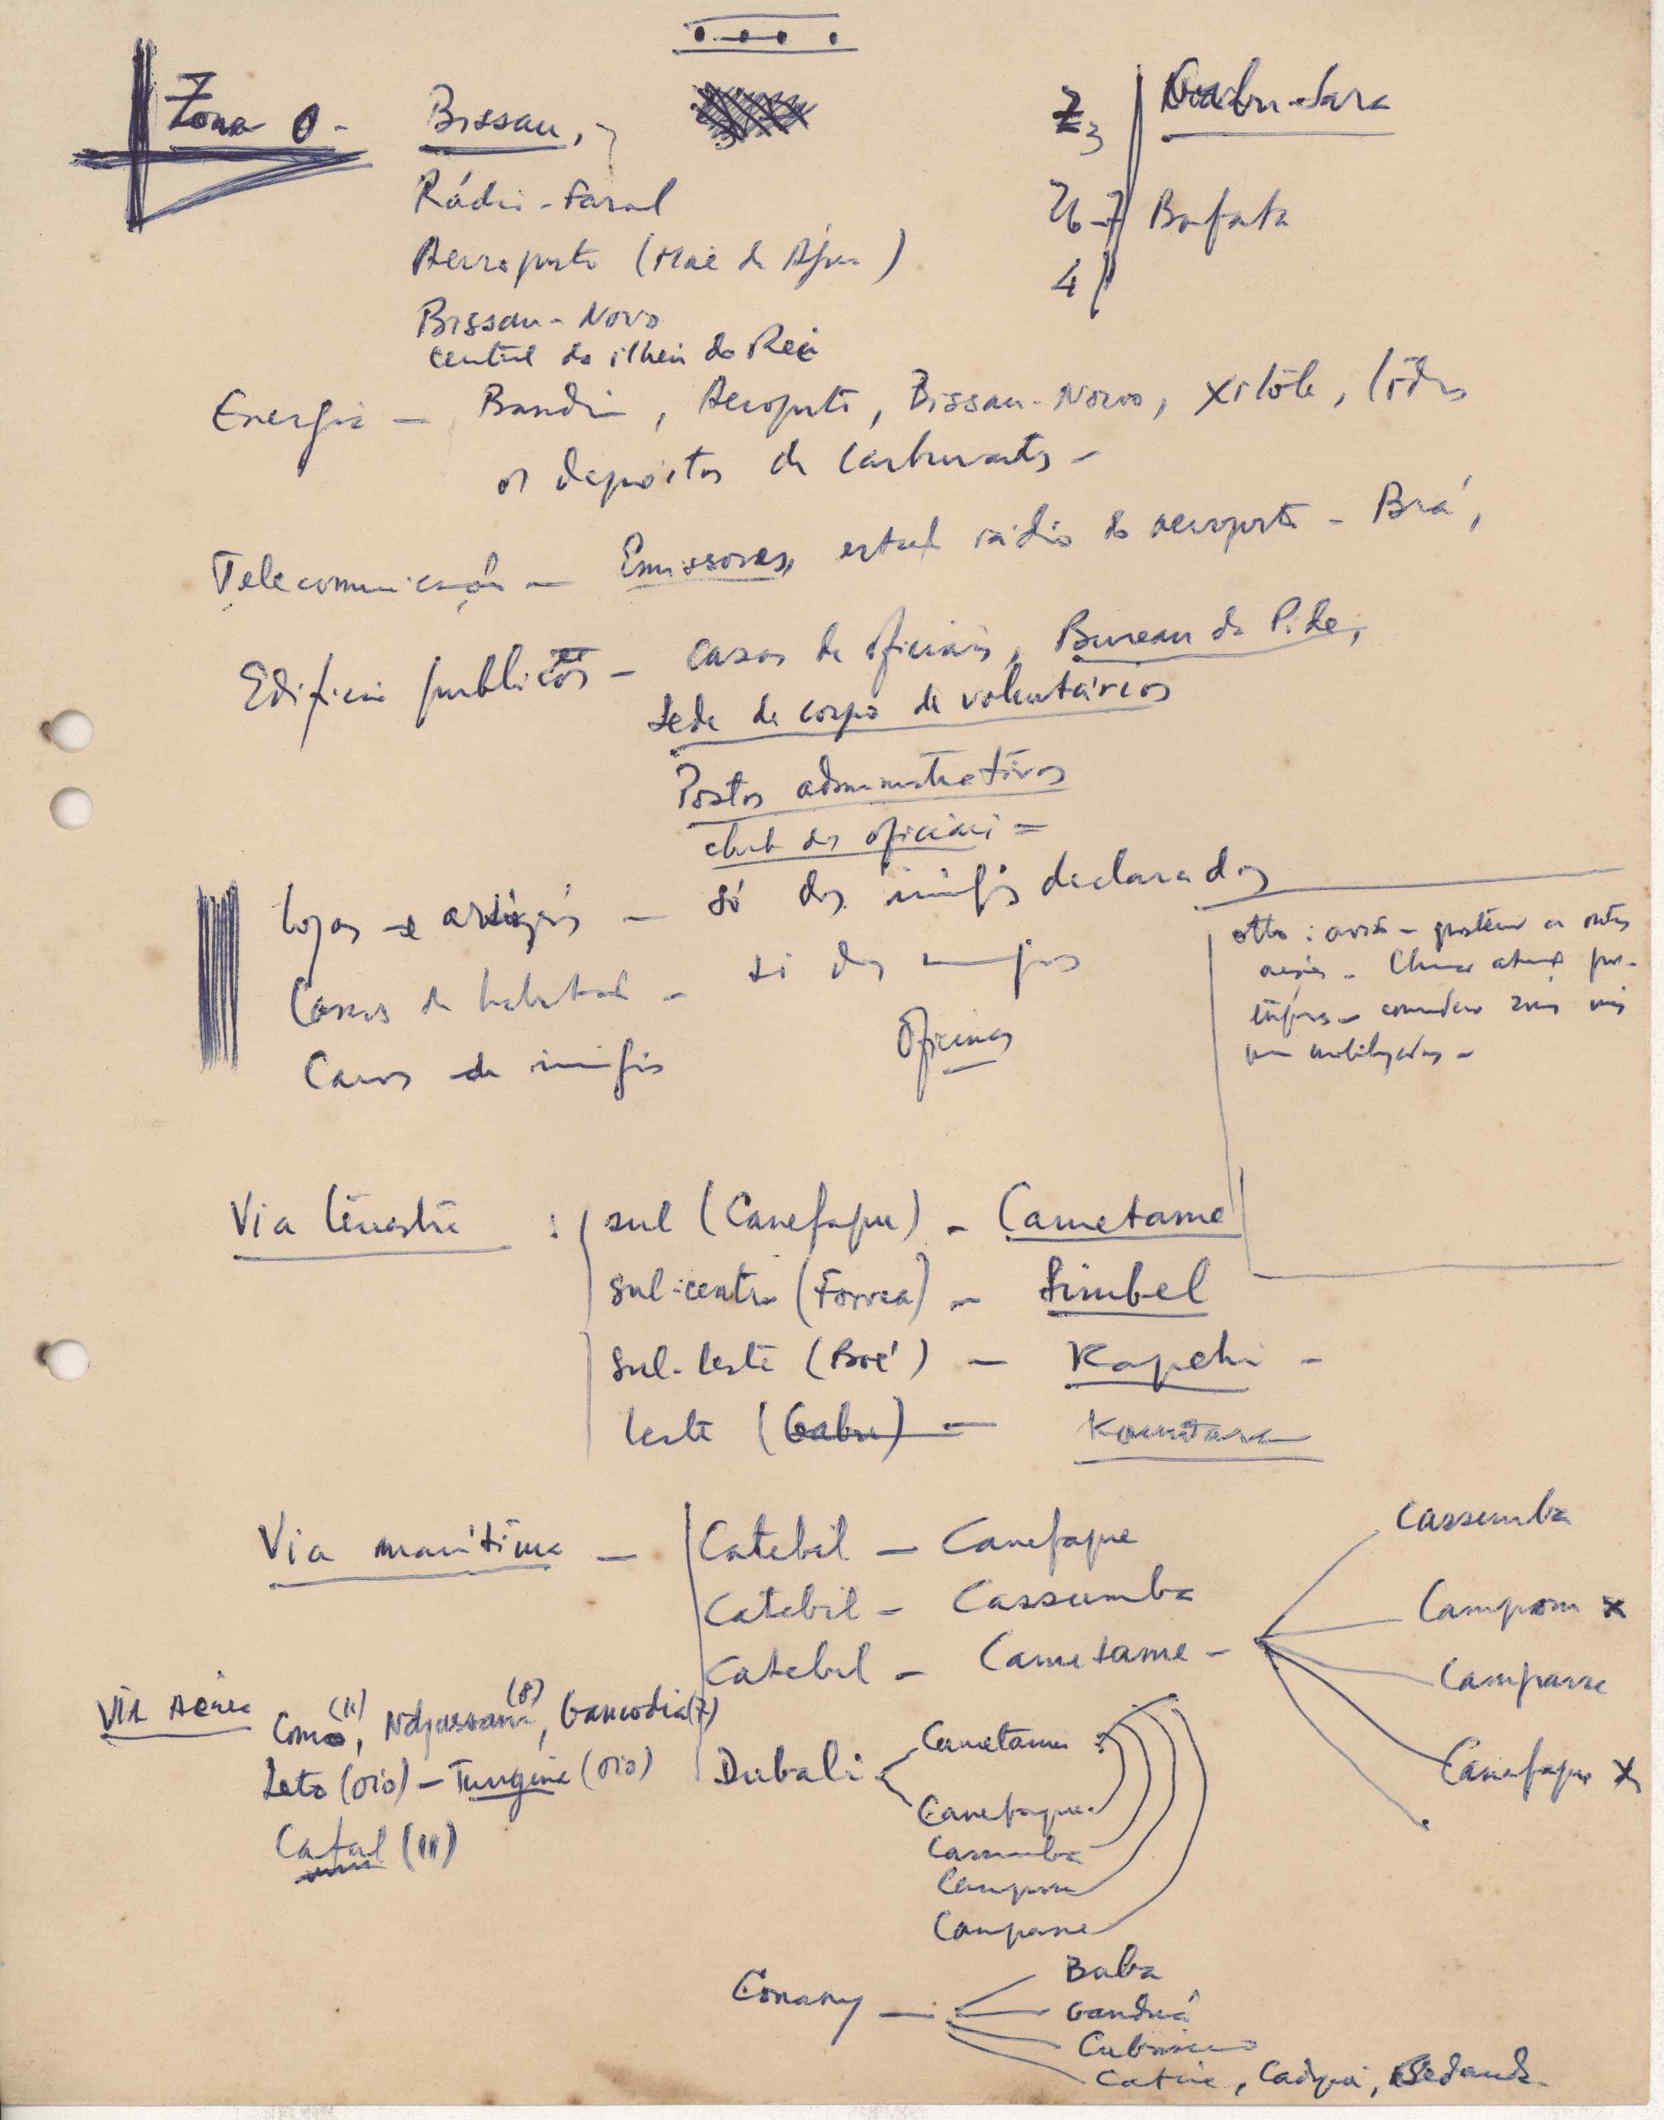 Zona 0 - Bissau,
Rádio - Farol
Aeroporto (Mãe de Água)
Bissau - Novo
central do ilheu do Rei
Z3 Gabu-Sara
Z6-7 Bafata
4
Energia - Bandim, Aeroporto, Bissau-Novo, Xitole, todos
os depositos de carburants -
Telecomunicação - Emissores, estaç rádio do aeroporto - Brá,
Edificio publicos - casas de oficiais, Bureau da Pide,
Sede de corpo de voluntários
Postos administrativos
club dos oficiais =
lojas e - só dos inimigos declarados
Casas de habitaç - só dos inimigos
Carros de inimigos Oficinas
otto: avião -
Via terrestre : sul (Canefaque) - Cametame
sul-centro (Forrea) - Simbel
sul-leste (Boé) - Kapebi -
leste (Gabu) - Kountara
Via marítima - Catebil - Canefaque
Catebil - Cassumba
Catebil - Cametame -
Cassumba
Campom x
Campane
Canefaque x
Via Aérea Como (11), Ndjassani (8), Gancodia (7)
Leto (oio) - Tungina (oio)
Cafal (11)
Dubali Cametame
Canefaque
Cassumba
Campom
Campane
Conakry - Baba
Ganduá
Cubisseco
Catine, Cadique, Bedanda